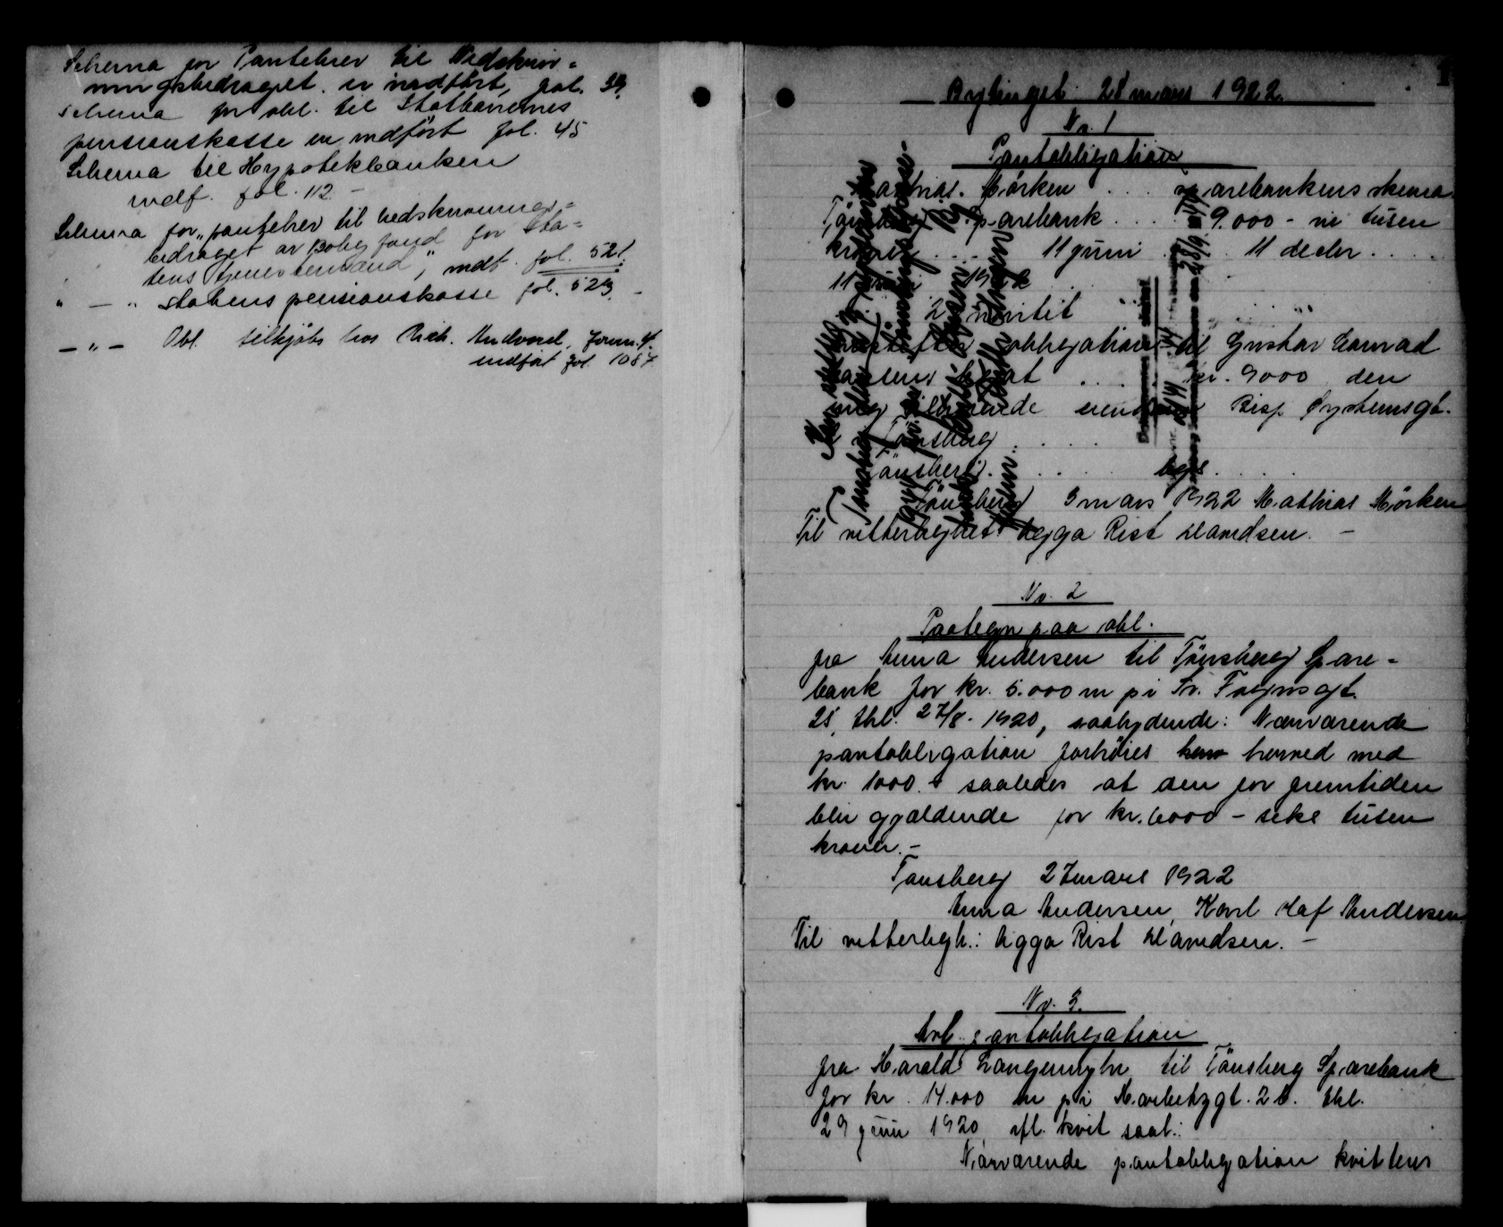 Schema for Pantebrev til Nedskriv=
ningsbidraget er indført, fol. 39.
Schema for obl. til Statbanernes
pensionskasse er indført fol. 45
Schema til Hypotekbanken
indf. fol. 112 -
Schema for "pantebrev til nedskrivnings=
bidraget av bolig fond for Sta=
tens tjenestemænd", indf. fol. 521.
" — " Statens pensionskasse fol. 523. -
— " — Obl. tilkjøbs hos Rich. Andvord, form.
indført fol. 1087
1
Bytinget 28 mars 1922.
Nr. 1
Pantobligation
Mathias Mørken . . . sparebankens skema
Tønsberg Sparebank . . . 9.000 - ni tusen
kroner . . . 11 juni . . 11 decbr. . . .
11 juni
2 prioritet
obligation til Gustav Konrad
kr. 9000 den
mig tilhørende eiendom Bisp Øysteinsgt.
i Tønsberg . . . .
Tønsberg . . . . . bys . . . .
Tønsberg 3 mars 1922 Mathias Mørken
Til vitterlighet Agga Rist Davidsen. -
Nr. 2
Paategn paa obl.
fra Anna Andersen til Tønsberg Spare=
bank for kr. 5.000 m p i St. Follynsgt.
25, thl. 27/8 - 1920, saalydende: Nærværende
pantobligation forhøies herved med
kr. 1000.- saaledes at den for fremtiden
blir gjældende for kr. 6000 - seks tusen
kroner. -
Tønsberg 27 mars 1922
Anna Andersen, Karl Olaf Andersen.
Til vitterligh.: Agga Rist Davidsen. -
Nr. 3.
Avl. pantobligation
fra Harald Langemyhr til Tønsberg Sparebank
for kr. 14.000 m p i Kvarbergt. 2 b. thl.
29 juni 1920, ifl. kvit saal.:
Nærværende pantobligation kvitteres